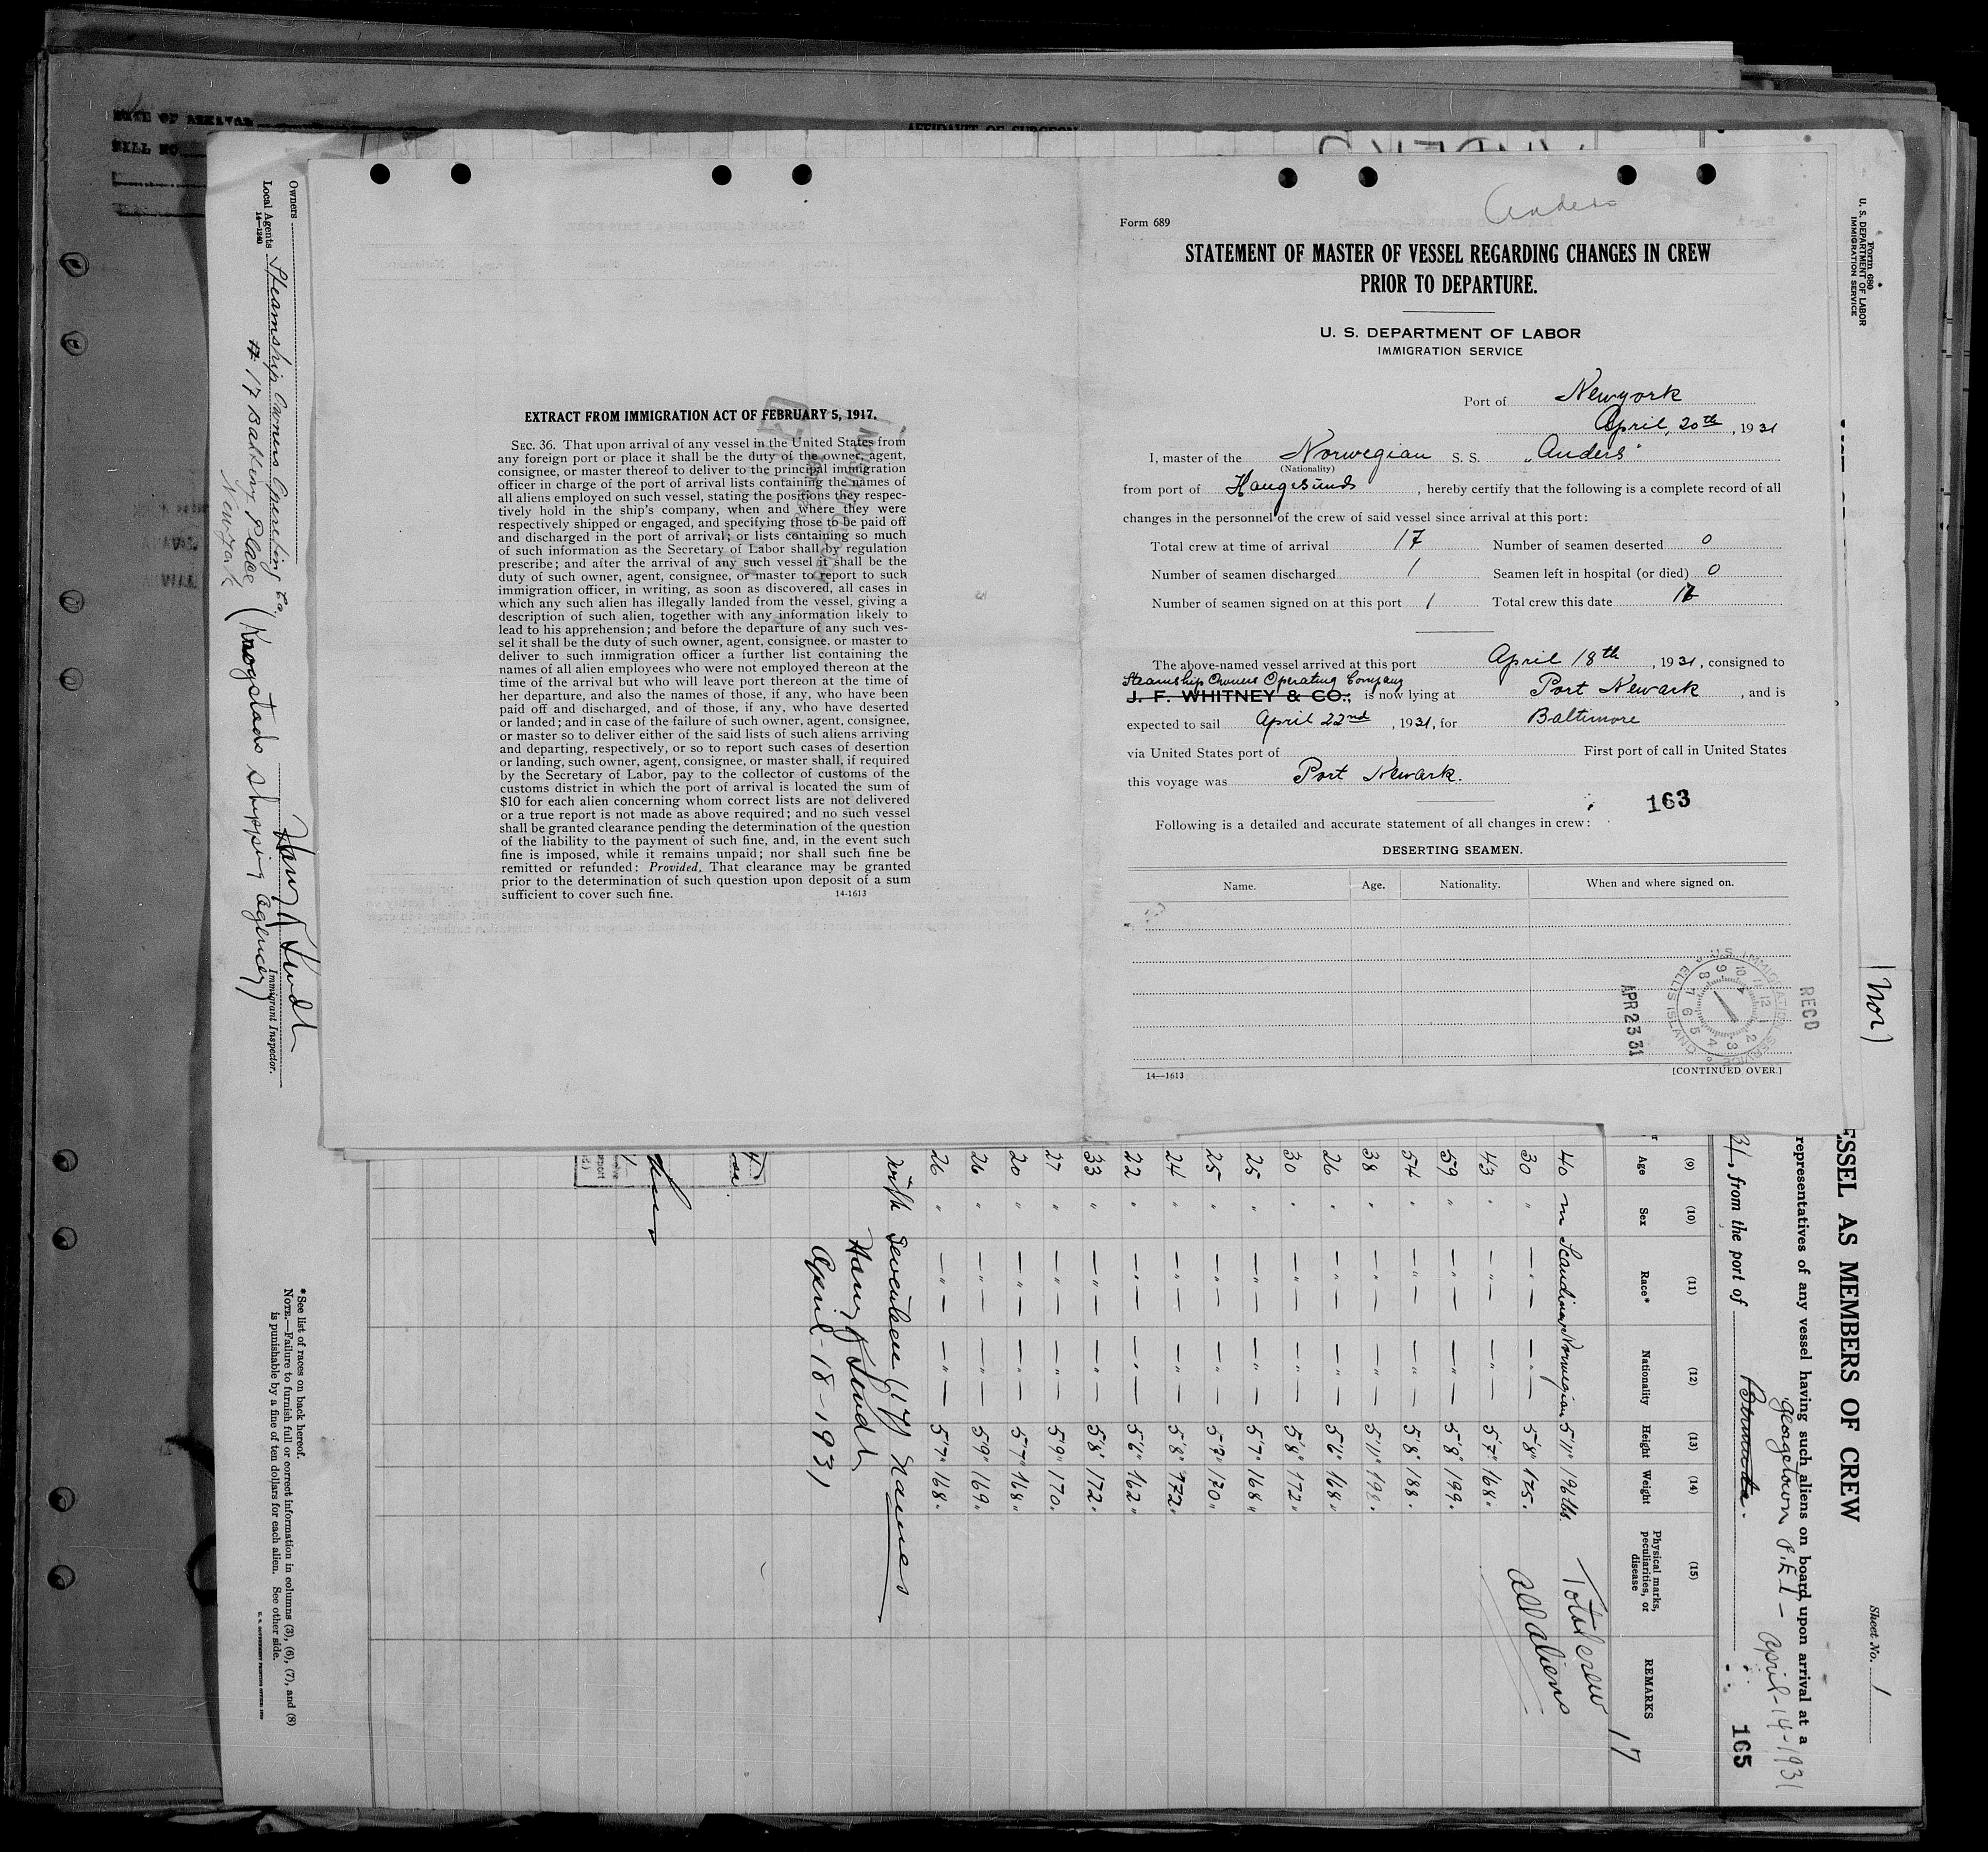 DATE OF ARRIVAL
BILL NO
AFFIDAVIT OF SURGEON
Anders
Form 689
STATEMENT OF MASTER OF VESSEL REGARDING CHANGES IN CREW
PRIOR TO DEPARTURE.
U. S. DEPARTMENT OF LABOR
IMMIGRATION SERVICE
Port of Newyork
April, 20th, 1931
I, master of the Norwegian S. S. "Anders"
(Nationality)
from port of Haugesunds, hereby certify that the following is a complete record of all
changes in the personnel of the crew of said vessel since arrival at this port:
Total crew at time of arrival 17 Number of seamen deserted 0
Number of seamen discharged 1 Seamen left in hospital (or died) 0
Number of seamen signed on at this port 1 Total crew this date 17
The above-named vessel arrived at this port April 18th, 1931, consigned to
Steamship Owners Operating Company
J. F. WHITNEY & CO.; is now lying at Port Newark, and is
expected to sail April 22nd, 1931, for Baltimore
via United States port of First port of call in United States
this voyage was Port Newark.
163
Following is a detailed and accurate statement of all changes in crew:
DESERTING SEAMEN.
Name. Age. Nationality. When and where signed on.
RECD
U.S. IMMIGRATION SERVICE ELLIS ISLAND
APR 23 31
14—1613 [CONTINUED OVER.]
EXTRACT FROM IMMIGRATION ACT OF FEBRUARY 5, 1917.
SEC. 36. That upon arrival of any vessel in the United States from
any foreign port or place it shall be the duty of the owner, agent,
consignee, or master thereof to deliver to the principal immigration
officer in charge of the port of arrival lists containing the names of
all aliens employed on such vessel, stating the positions they respec-
tively hold in the ship's company, when and where they were
respectively shipped or engaged, and specifying those to be paid off
and discharged in the port of arrival; or lists containing so much
of such information as the Secretary of Labor shall by regulation
prescribe; and after the arrival of any such vessel it shall be the
duty of such owner, agent, consignee, or master to report to such
immigration officer, in writing, as soon as discovered, all cases in
which any such alien has illegally landed from the vessel, giving a
description of such alien, together with any information likely to
lead to his apprehension; and before the departure of any such ves-
sel it shall be the duty of such owner, agent, consignee, or master to
deliver to such immigration officer a further list containing the
names of all alien employees who were not employed thereon at the
time of the arrival but who will leave port thereon at the time of
her departure, and also the names of those, if any, who have been
paid off and discharged, and of those, if any, who have deserted
or landed; and in case of the failure of such owner, agent, consignee,
or master so to deliver either of the said lists of such aliens arriving
and departing, respectively, or so to report such cases of desertion
or landing, such owner, agent, consignee, or master shall, if required
by the Secretary of Labor, pay to the collector of customs of the
customs district in which the port of arrival is located the sum of
$10 for each alien concerning whom correct lists are not delivered
or a true report is not made as above required; and no such vessel
shall be granted clearance pending the determination of the question
of the liability to the payment of such fine, and, in the event such
fine is imposed, while it remains unpaid; nor shall such fine be
remitted or refunded: Provided, That clearance may be granted
prior to the determination of such question upon deposit of a sum
sufficient to cover such fine. 14-1613
Form 680
U. S. DEPARTMENT OF LABOR
IMMIGRATION SERVICE
(nor)
Sheet No. 1
ESSEL AS MEMBERS OF CREW
representatives of any vessel having such aliens on board upon arrival at a
Georgetown P.E.I - April-14-1931
31, from the port of Bermuda.
165
(9) (10) (11) (12) (13) (14) (15)
Age Sex Race* Nationality Height Weight Physical marks, peculiarities, or disease REMARKS
17
40 m Scandinav Norwegian 5'11" 196 lbs. Total crew
30 " — " — — " — 5'8" 175. all aliens
43 " — " — — " — 5'7" 168.
59 " — " — — " — 5'8" 199.
54 " — " — — " — 5'8" 188.
38 " — " — — " — 5'11" 198.
26 " — " — — " — 5'6" 168"
30 " — " — — " — 5'8" 172"
25 " — " — — " — 5'7" 168"
25 " — " — — " — 5'9" 170"
24 " — " — — " — 5'8" 172"
22 " — " — — " — 5'6" 162"
33 " — " — — " — 5'8" 172"
27 " — " — — " — 5'9" 170.
20 " — " — — " — 5'7" 168"
26 " — " — — " — 5'9" 169"
26 " — " — — " — 5'7" 168.
with Seventeen (17) names
April-18-1931
Immigrant Inspector.
*See list of races on back hereof.
NOTE.—Failure to furnish full or correct information in columns (3), (6), (7), and (8)
is punishable by a fine of ten dollars for each alien. See other side.
U. S. GOVERNMENT PRINTING OFFICE
Owners
Local Agents Steamship Owners Operating Co.
14-1240
# 17 Battery Place (Krogstads Shipping Agency)
Newyork